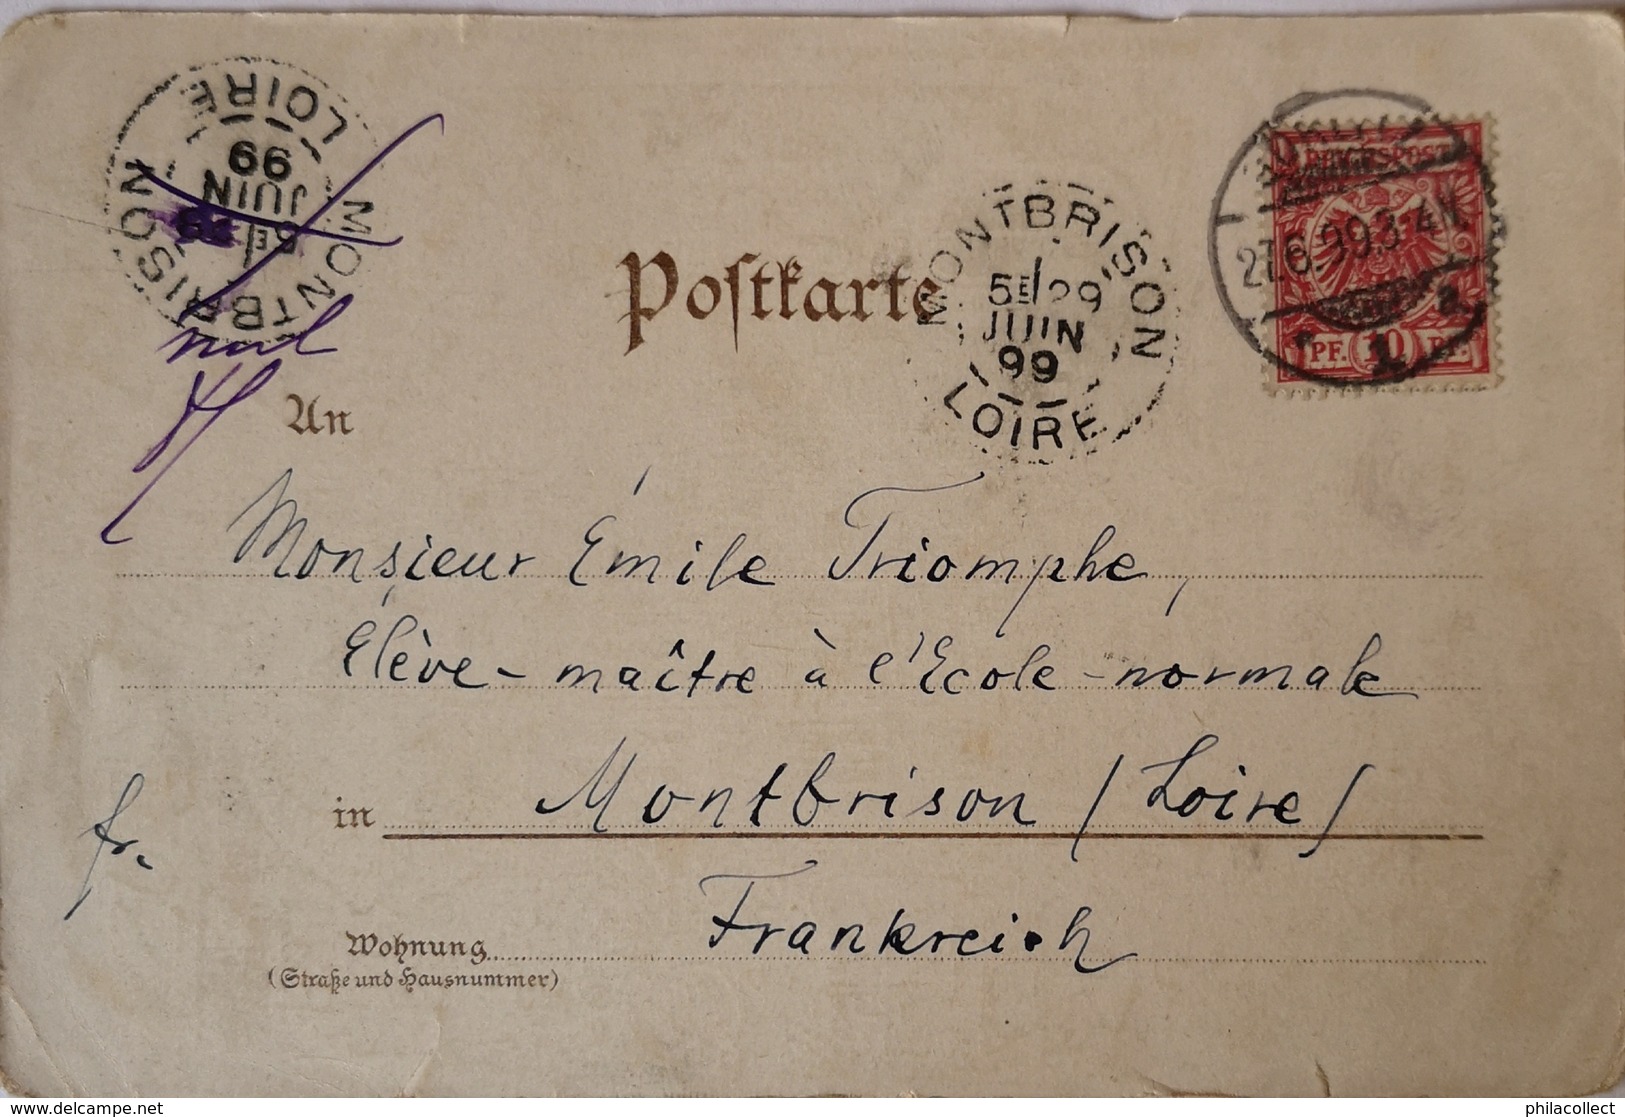 MONTBRISON
5E/29
JUIN
99
LOIRE
REICHSPOST
27.6.99.3-4N.
PF. 10 PF.
Postkarte
MONTBRISON
5E/29
JUIN
99
LOIRE
nul
An
Monsieur Émile Triomphe,
Élève-maître à l'Ecole-normale
in Montbrison (Loire)
fr.
Frankreich
Wohnung
(Straße und Hausnummer)
delcampe.net
philacollect